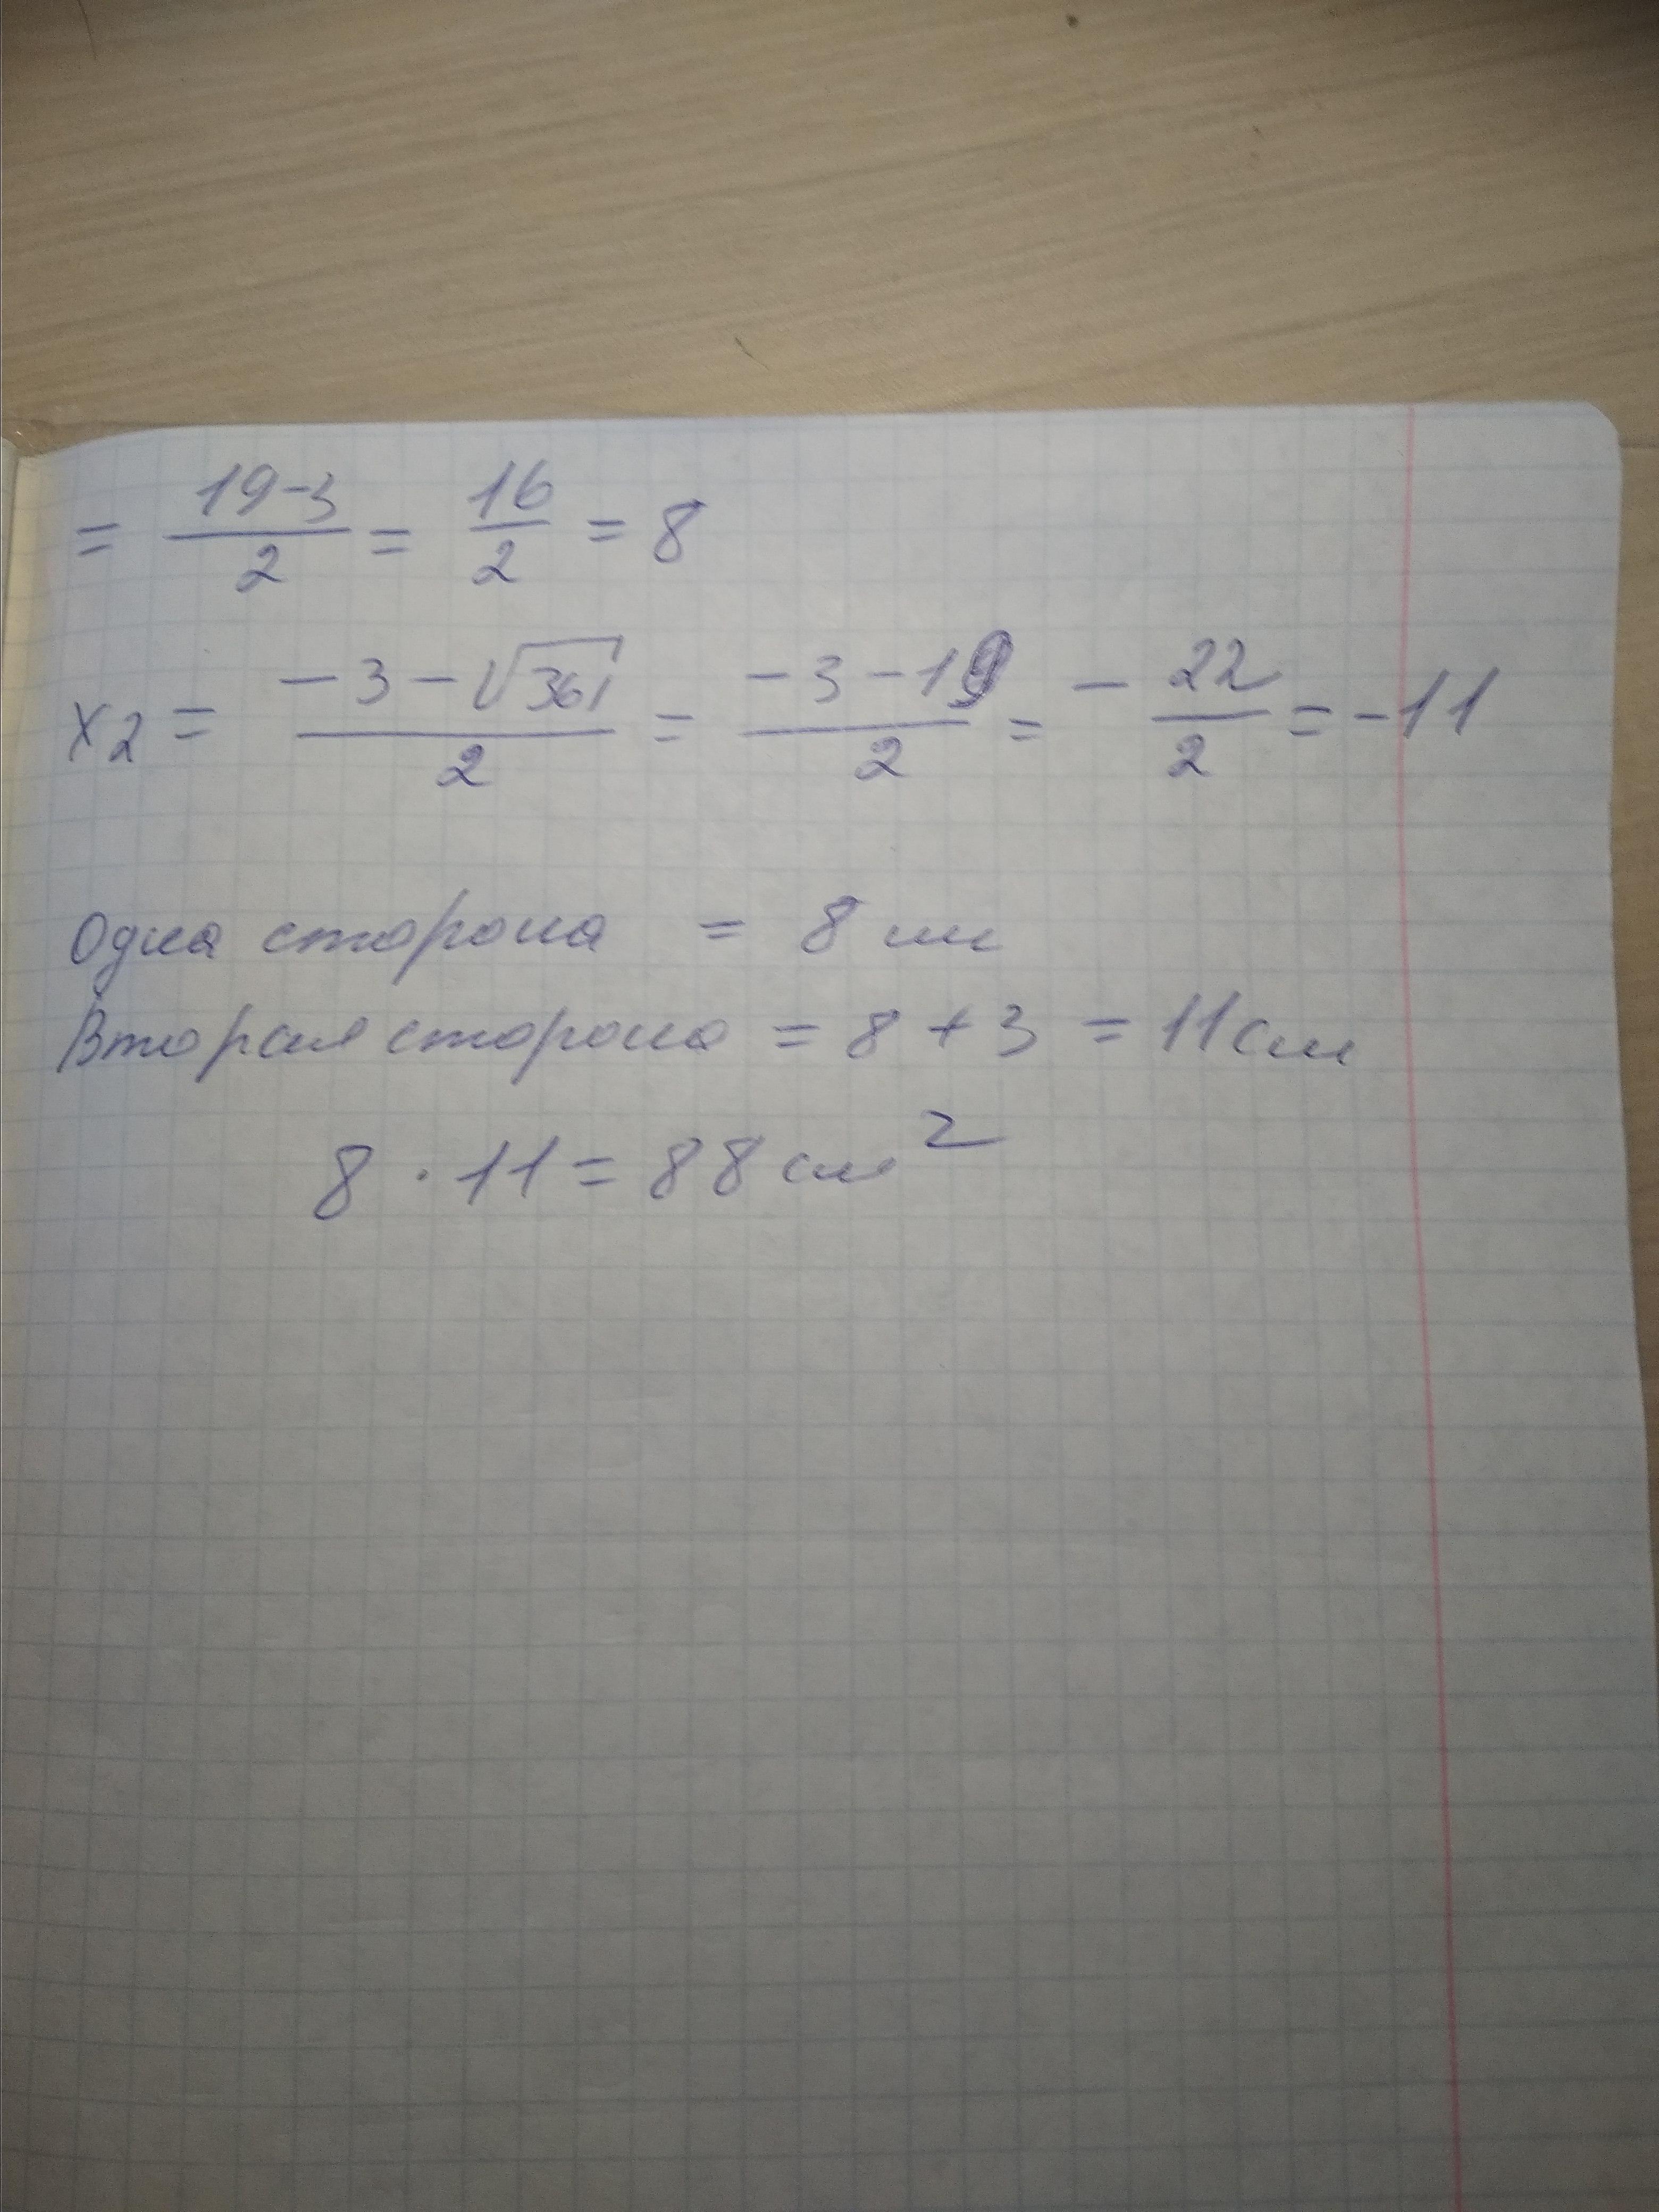 = 19-3/2 = 16/2 = 8
x₂ = -3-√361/2 = -3-19/2 = -22/2 = -11
Одна сторона = 8 см
Вторая сторона = 8 + 3 = 11 см
8 · 11 = 88 см²